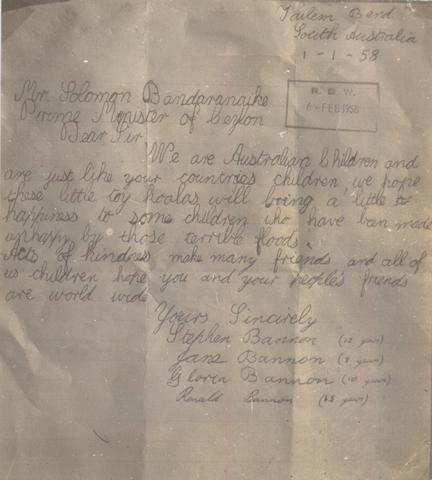 Tailem Bend
South Australia
1-1-58
R.E.W.
6-FEB 1958
Mr. Solomon Bandaranaike
Prime Minister of Ceylon
Dear Sir
We are Australian Children and
are just like your countries children, we hope
these little toy koalas will bring a little
happiness to some children who have ban made
unhappy by those terrible floods.
Acts of kindness make many friends and all of
us children hope you and your peoples friends
are world wide
Yours Sincirely
Stephen Bannon (12 years)
Jane Bannon
Gloria Bannon (10 years)
Ronald Bannon